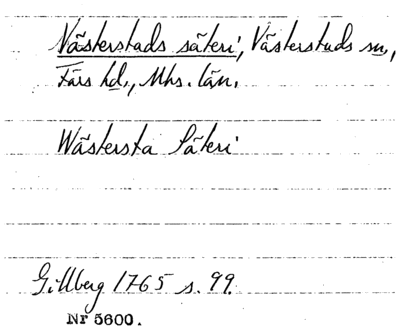 Västerstads säteri, Västerstads sn.,
Färs hd., Mhs. län.
Wästersta Säteri
Gillberg 1765 s. 99.
Nr 5600.